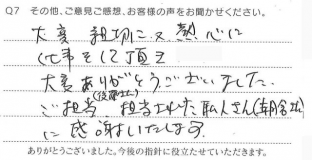 Q7 その他、ご意見ご感想、お客様の声をお聞かせください。
大変 親切に又 熱心に
仕事をして頂き
大変ありがとうございました。
ご担当 担当された 職人さん
に感謝いたします。
ありがとうございました。今後の指針に役立たせていただきます。